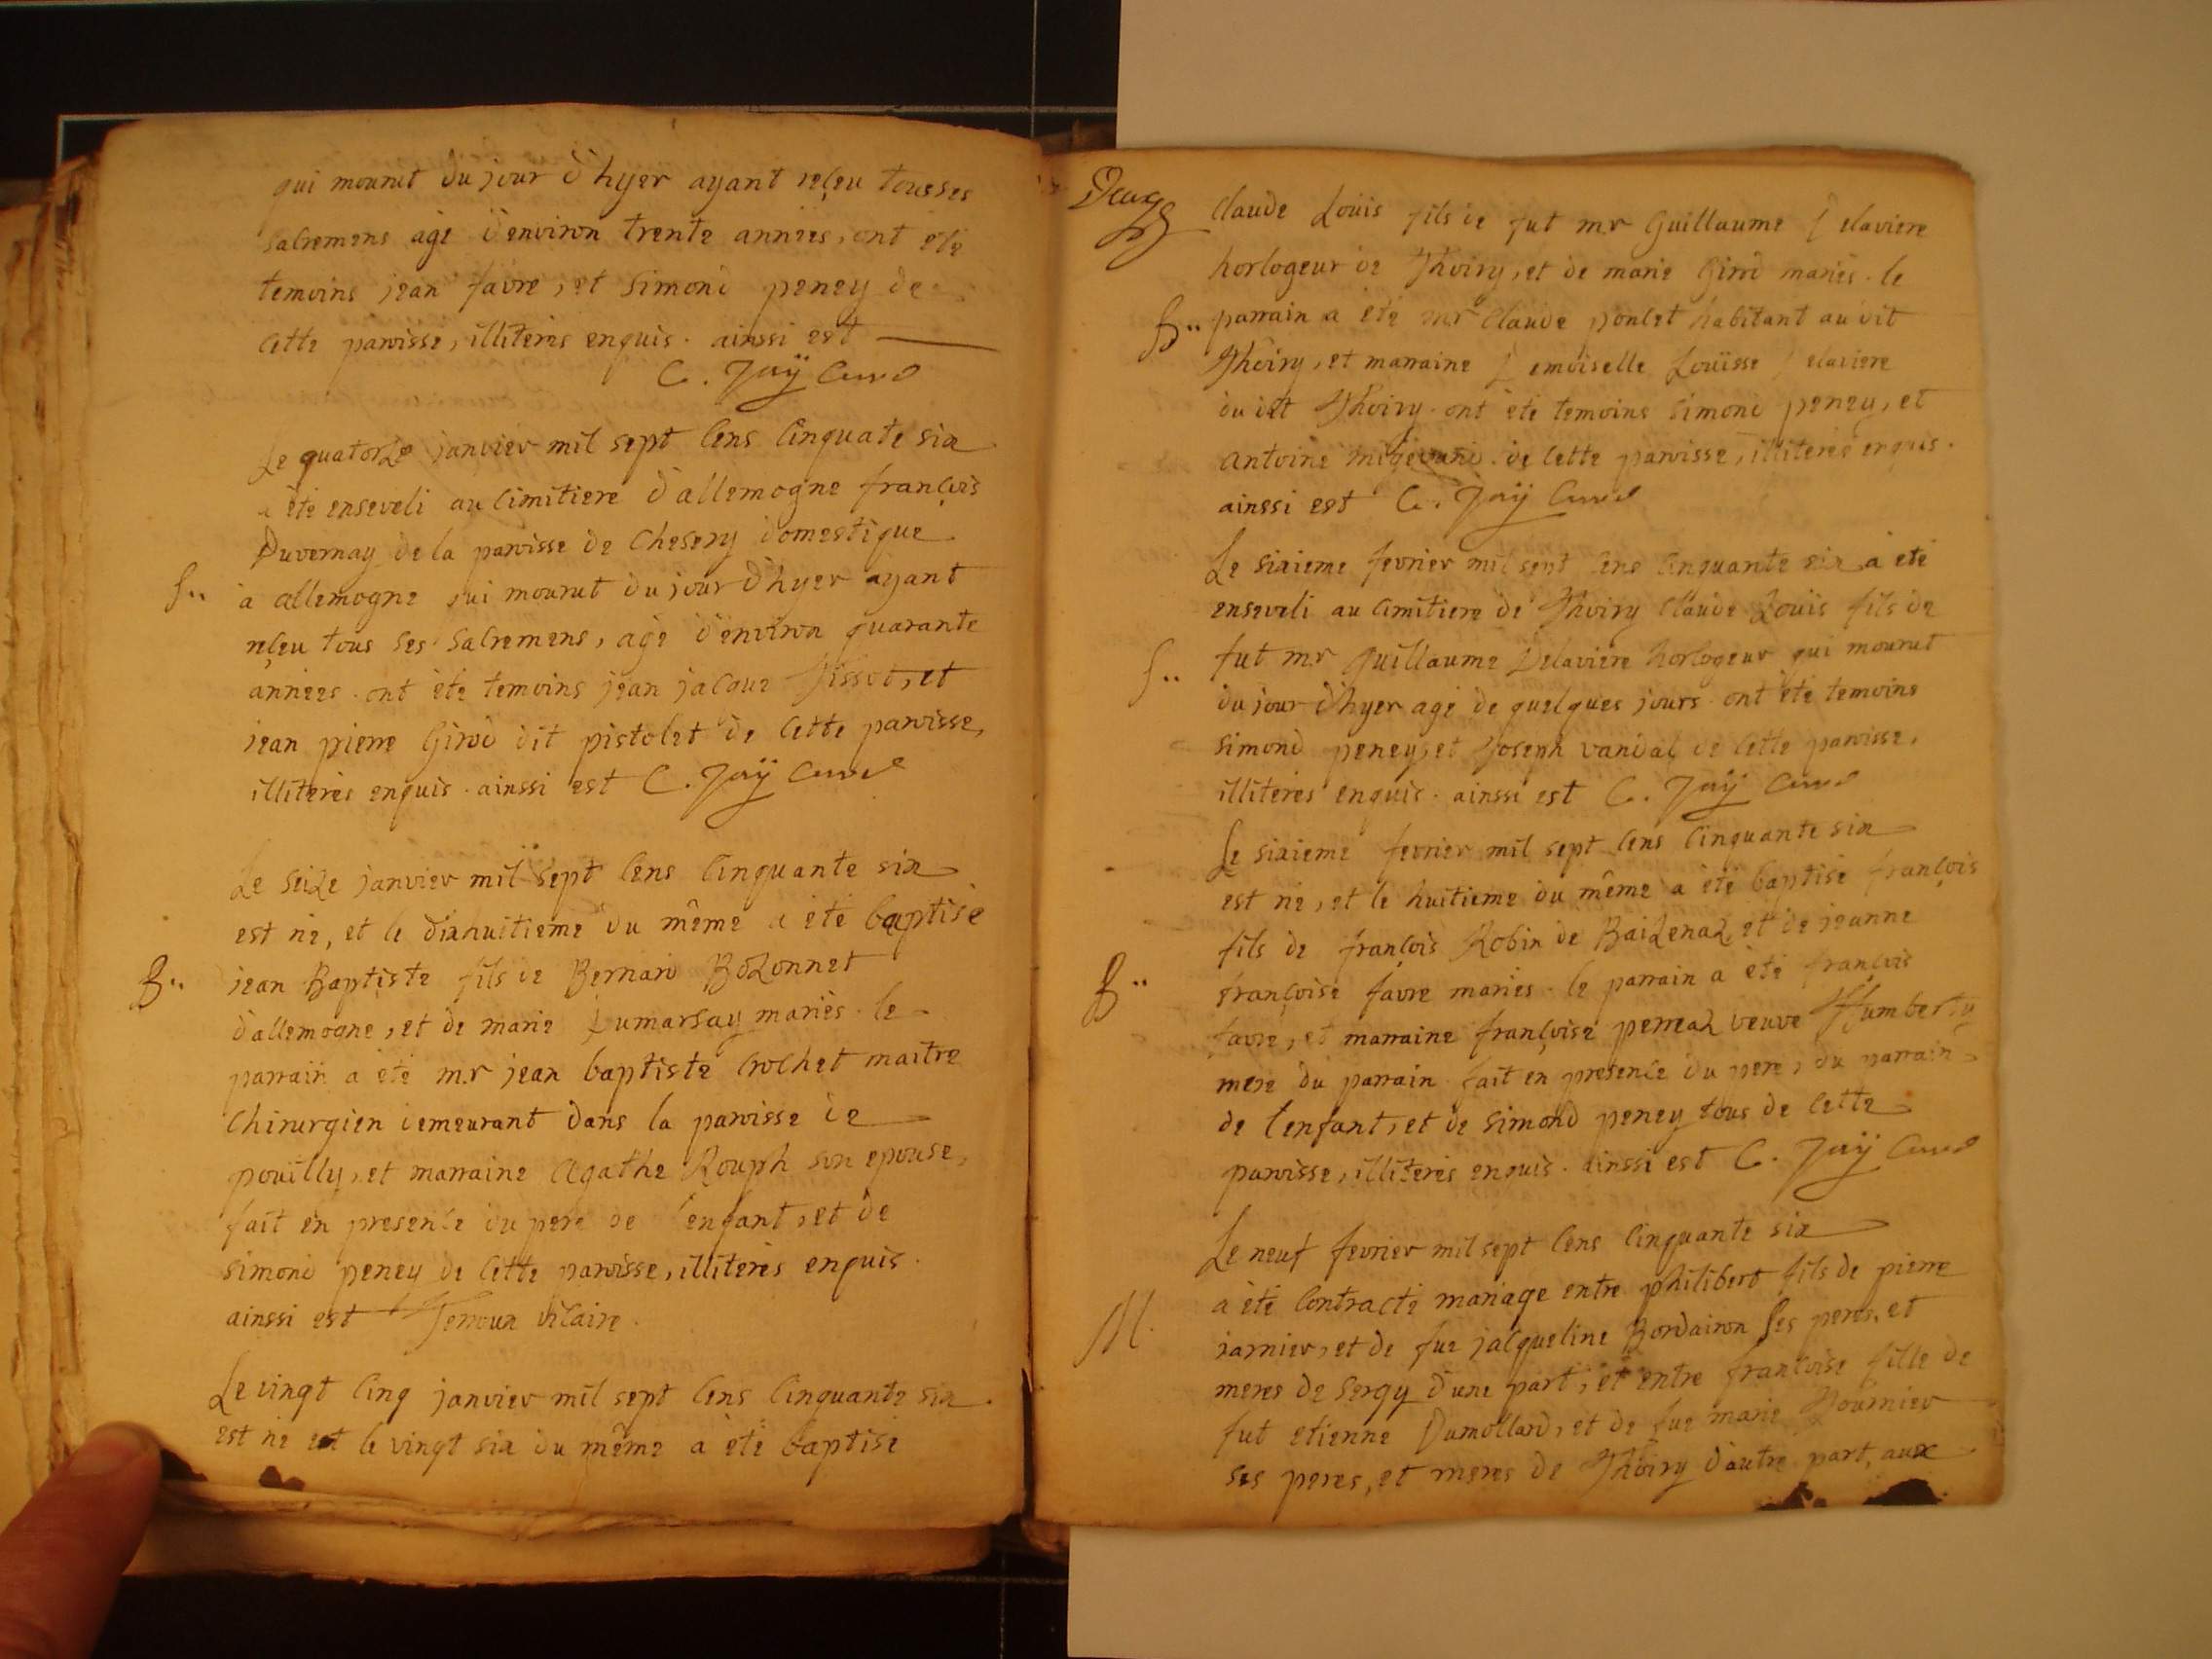 qui mourut du jour d'hyer ayant reçeu tousses
sacremens agé d'environ trente annèes, ont été
temoins jean favre, et simond peney de
cette paroisse, illiterés enquis. ainssi est
C. Jaÿ Curé
Le quatorze janvier mil sept cens cinquate six
a èté enseveli au cimitiere d'allemogne françois
Duvernay de la paroisse de Chesery domestique
S..
a allemogne qui mourut du jour d'hyer ayant
reçeu tous ses sacremens, agé d'environ quarante
annèes. ont èté temoins jean jacque Tissot, et
jean pierre Girod dit pistolet de cette paroisse,
illiterés enquis. ainssi est C. Jaÿ Curé
Le seize janvier mil sept cens cinquante six
est né, et le dixhuitieme du même a èté baptisé
B..
jean Baptiste fils de Bernard Bozonnet
d'allemogne, et de marie Dumarsay mariès. le
parrain a èté mr jean baptiste Crochet maitre
Chirurgien demeurant dans la paroisse de
pouilly, et marraine Agathe Rouph son epouse,
fait en presence du pere de l'enfant, et de
simond peney de cette paroisse, illiterés enquis.
ainssi est Terroux vicaire.
Le vingt cinq janvier mil sept cens cinquante six
est né et le vingt six du même a èté baptisé
Deux
Claude Loüis fils de fut mr Guillaume Delaviere
horlogeur de Thoiry, et de marie Girod mariès. le
B..
parrain a èté mr Claude poncet habitant au dit
Thoiry, et marraine Demoiselle Loüisse Delaviere
du dit Thoiry. ont èté temoins simond peney, et
antoine migevand de cette paroisse, illiterés enquis.
ainssi est C. Jaÿ Curé
Le sixieme fevrier mil sept cens cinquante six a èté
enseveli au cimitiere de Thoiry Claude Loüis fils de
S..
fut mr Guillaume Delaviere horlogeur qui mourut
du jour d'hyer agé de quelques jours. ont èté temoins
simond peney, et Joseph vandal de cette paroisse,
illiterés enquis. ainssi est C. Jaÿ Curé
Le sixieme fevrier mil sept cens cinquante six
est né, et le huitieme du même a èté baptisé françois
fils de françois Robin de Baizenaz, et de jeanne
B..
françoise favre mariès. le parrain a èté françois
favre, et marraine françoise perreaz veuve Humberty
mere du parrain. fait en presence du pere, du parrain
de l'enfant, et de simond peney tous de cette
paroisse, illiterés enquis. ainssi est C. Jaÿ Curé
Le neuf fevrier mil sept cens cinquante six
M.
a èté contracté mariage entre philibert fils de pierre
jarnier, et de fue jacqueline Bordairon ses peres, et
meres de sergy d'une part, et entre françoise fille de
fut etienne Dumollard, et de fue marie Fournier
ses peres, et meres de Thoiry d'autre part, aux